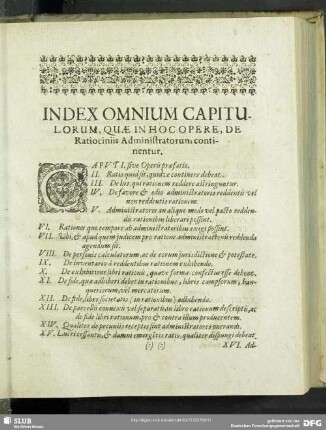 INDEX OMNIUM CAPITU-
LORUM, QUÆ IN HOC OPERE, DE
Ratiociniis Administratorum conti-
nentur.
CAPVT I. sive Operis præfatio.
II. Ratio quid sit, quidve continere debeat.
III. De his, qui rationem reddere astringuntur.
IV. De favore & odio administratoris reddentis vel
non reddentis rationem.
V. Administratores an aliquo modo vel pacto redden-
dis rationibus liberari possint.
VI. Rationes quo tempore ab administratoribus exigi possint.
VII. Vbi, & apud quem judicem pro ratione administrationis reddenda
agendum sit.
VIII. De personis calculatorum ac de eorum jurisdictione & potestate.
IX. De inventario à reddentibus rationem exhibendo.
X. De exhibitione libri rationis, quave forma confectus esse debeat.
XI. De fide, quæ adhiberi debet in rationibus, libris campsorum, ban-
queriorum, vel mercatorum.
XII. De fide, libro societatis (in rationibus) adhibenda.
XIII. De parcellis communi vel separatis, in libro rationum descriptis, ac
de fide libri rationum, pro & contra illum producentem.
XIV. Qualiter de pecuniis receptis sint administratores onerandi.
XV. Lucri cessantis, & damni emergentis ratio, qualiter dispungi debeat.
(:) (:)
XVI. Ad-
SLUB
Wir führen Wissen.
gefördert von der
Deutschen Forschungsgemeinschaft
DFG